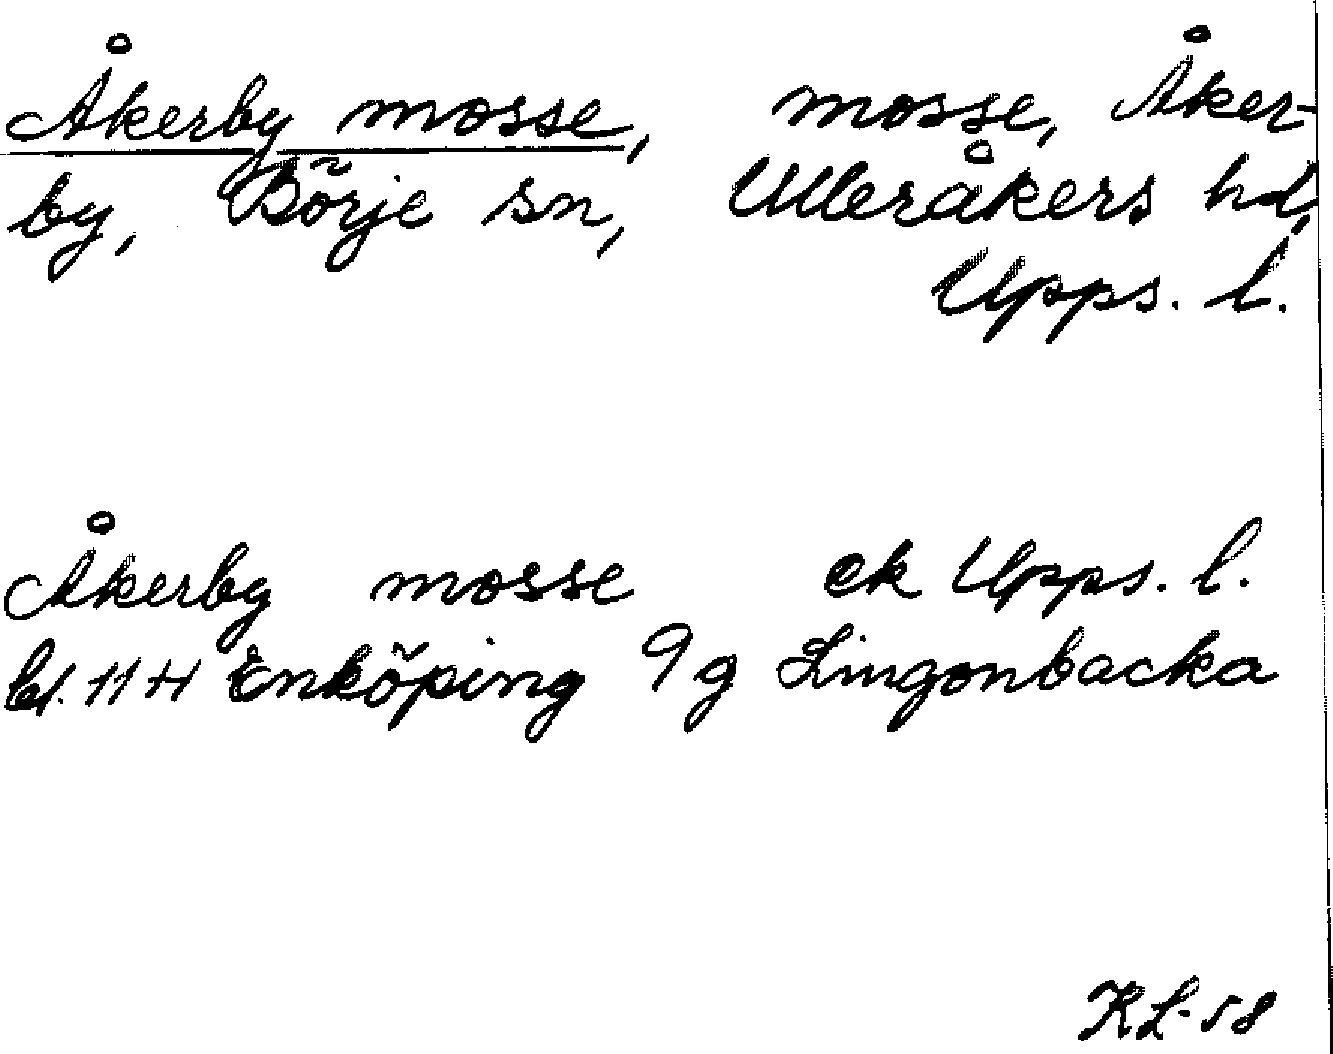 Åkerby mosse, mosse, Åker-
by, Börje sn, Ulleråkers hd,
Upps. l.
Åkerby mosse ek Upps. l.
bl. 11 H Enköping 9 g Lingonbacka
KL-58